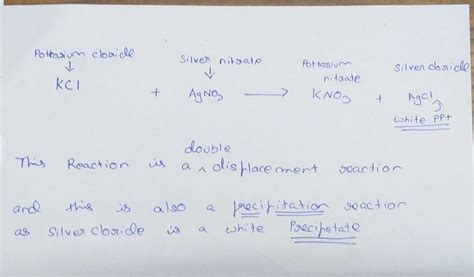 Pottasium cloride
Silver nitrate
Pottasium nitrate
Silver cloride
KCl + AgNO3 → KNO3 + AgCl
white PPt
double
This Reaction is a ^ displacement reaction
and this is also a precipitation reaction
as Silver Cloride is a white Precipetate